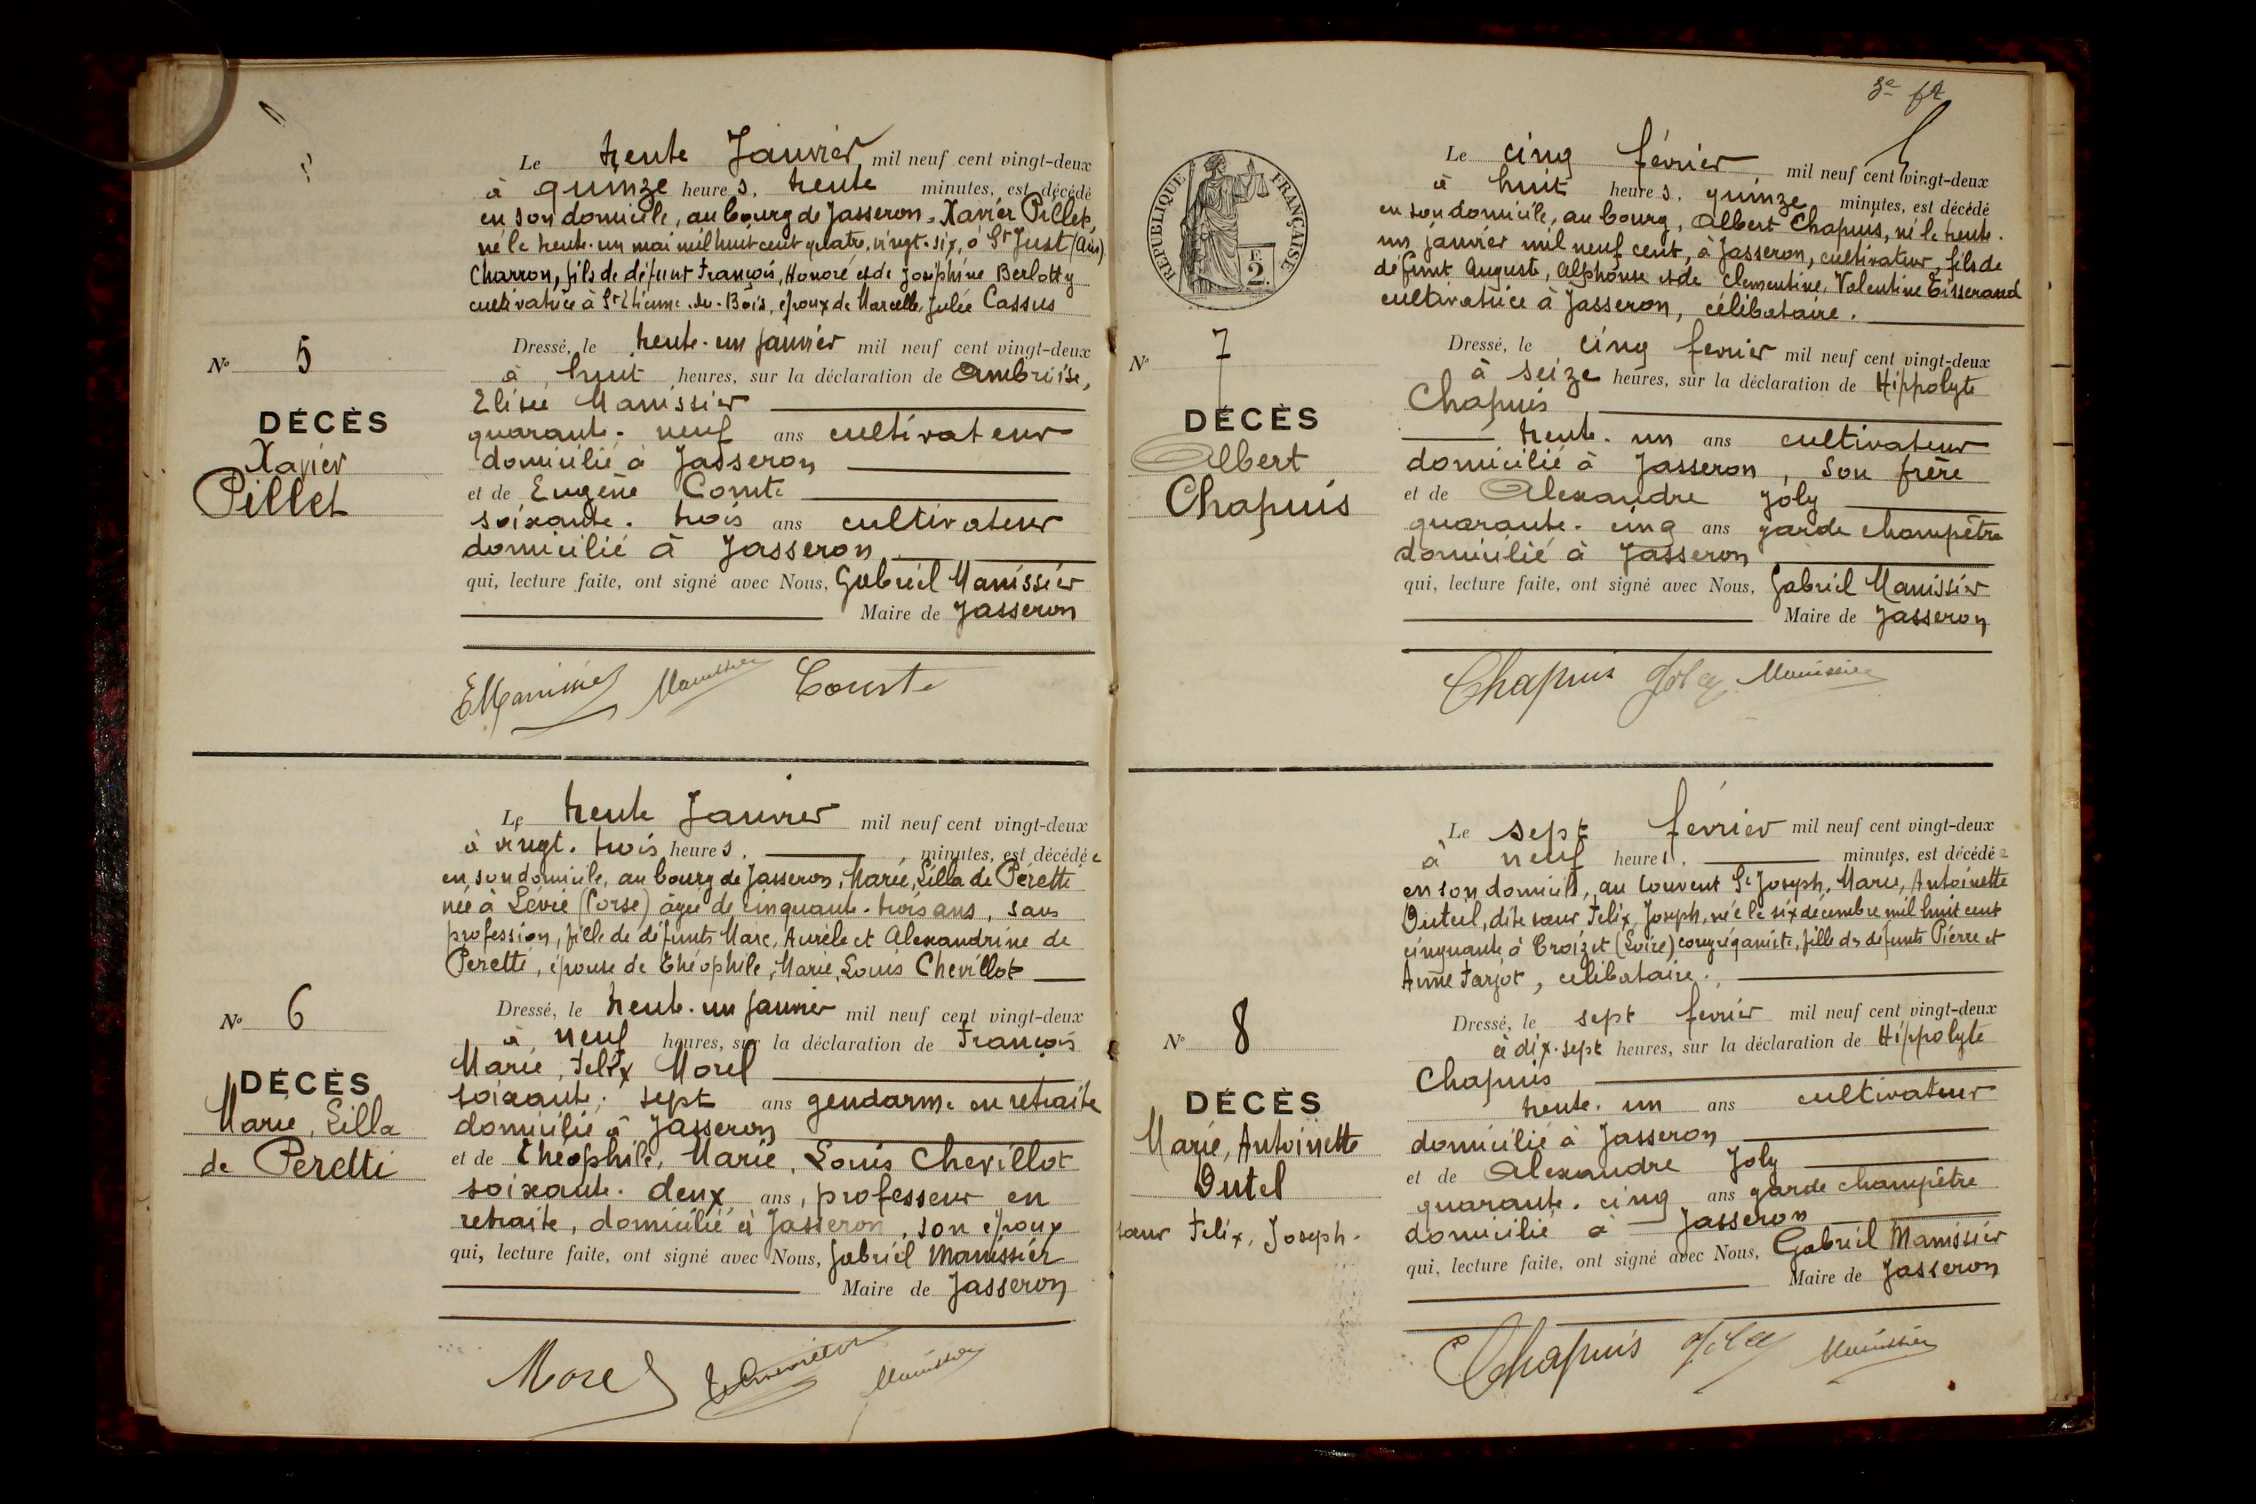 Le trente Janvier mil neuf cent vingt-deux
à quinze heures, trente minutes, est décédé
en son domicile, au bourg de Jasseron, Xavier Pillet,
né le trente-un mai mil huit cent quatre-vingt-six, à St Just (Ain)
Charron, fils de défunt François, Honoré et de Joséphine Berlotty
cultivatrice à St Etienne-du-Bois, époux de Marcelle, Julie Cassus
Nº 5
DÉCÈS
Xavier
Pillet
Dressé, le trente-un janvier mil neuf cent vingt-deux
à huit heures, sur la déclaration de Ambroise,
Elisée Manissier
quarante-neuf ans cultivateur
domicilié à Jasseron
et de Eugène Comte
soixante-trois ans cultivateur
domicilié à Jasseron
qui, lecture faite, ont signé avec Nous, Gabriel Manissier
Maire de Jasseron
EManissier Manissier Comte
Le trente Janvier mil neuf cent vingt-deux
à vingt-trois heures, minutes, est décédée
en son domicile, au bourg de Jasseron, Marie, Lilla de Péretti
née à Lévie (Corse) âgée de cinquante-trois ans, sans
profession, fille de défunts Marc, Aurèle et Alexandrine de
Peretti, épouse de Théophile, Marie, Louis Chevillot
Nº 6
DÉCÈS
Marie, Lilla
de Peretti
Dressé, le trente-un janvier mil neuf cent vingt-deux
à neuf heures, sur la déclaration de François
Marie, Felix Morel
soixante-sept ans gendarme en retraite
domicilié à Jasseron
et de Théophile, Marie, Louis Chevillot
soixante-deux ans, professeur en
retraite, domicilié à Jasseron, son époux
qui, lecture faite, ont signé avec Nous, Gabriel Manissier
Maire de Jasseron
Morel Manissier
3e ft
RÉPUBLIQUE FRANÇAISE
2
Le cinq février mil neuf cent vingt-deux
à huit heures, quinze minutes, est décédé
en son domicile, au bourg, Albert Chapuis, né le trente-
un janvier mil neuf cent, à Jasseron, cultivateur, fils de
défunt Auguste, Alphonse et de Clementine, Valentine Tisserand
cultivatrice à Jasseron, célibataire.
Nº 7
DÉCÈS
Albert
Chapuis
Dressé, le cinq fevrier mil neuf cent vingt-deux
à seize heures, sur la déclaration de Hippolyte
Chapuis
trente-un ans cultivateur
domicilié à Jasseron, son frère
et de Alexandre Joly
quarante-cinq ans garde champêtre
domicilié à Jasseron
qui, lecture faite, ont signé avec Nous, Gabriel Manissier
Maire de Jasseron
Chapuis Joly Manissier
Le sept février mil neuf cent vingt-deux
à neuf heures, minutes, est décédée
en son domicile, au couvent St Joseph, Marie, Antoinette
Duteil, dite sœur Felix, Joseph, née le six décembre mil huit cent
cinquante à Croizet (Loire) congréganiste, fille de defunts Pierre et
Anne Farjot, celibataire.
Nº 8
DÉCÈS
Marie, Antoinette
Dutel
sœur Felix, Joseph.
Dressé, le sept fevrier mil neuf cent vingt-deux
à dix-sept heures, sur la déclaration de Hippolyte
Chapuis
trente-un ans cultivateur
domicilié à Jasseron
et de Alexandre Joly
quarante-cinq ans garde champêtre
domicilié à Jasseron
qui, lecture faite, ont signé avec Nous, Gabriel Manissier
Maire de Jasseron
Chapuis Joly Manissier